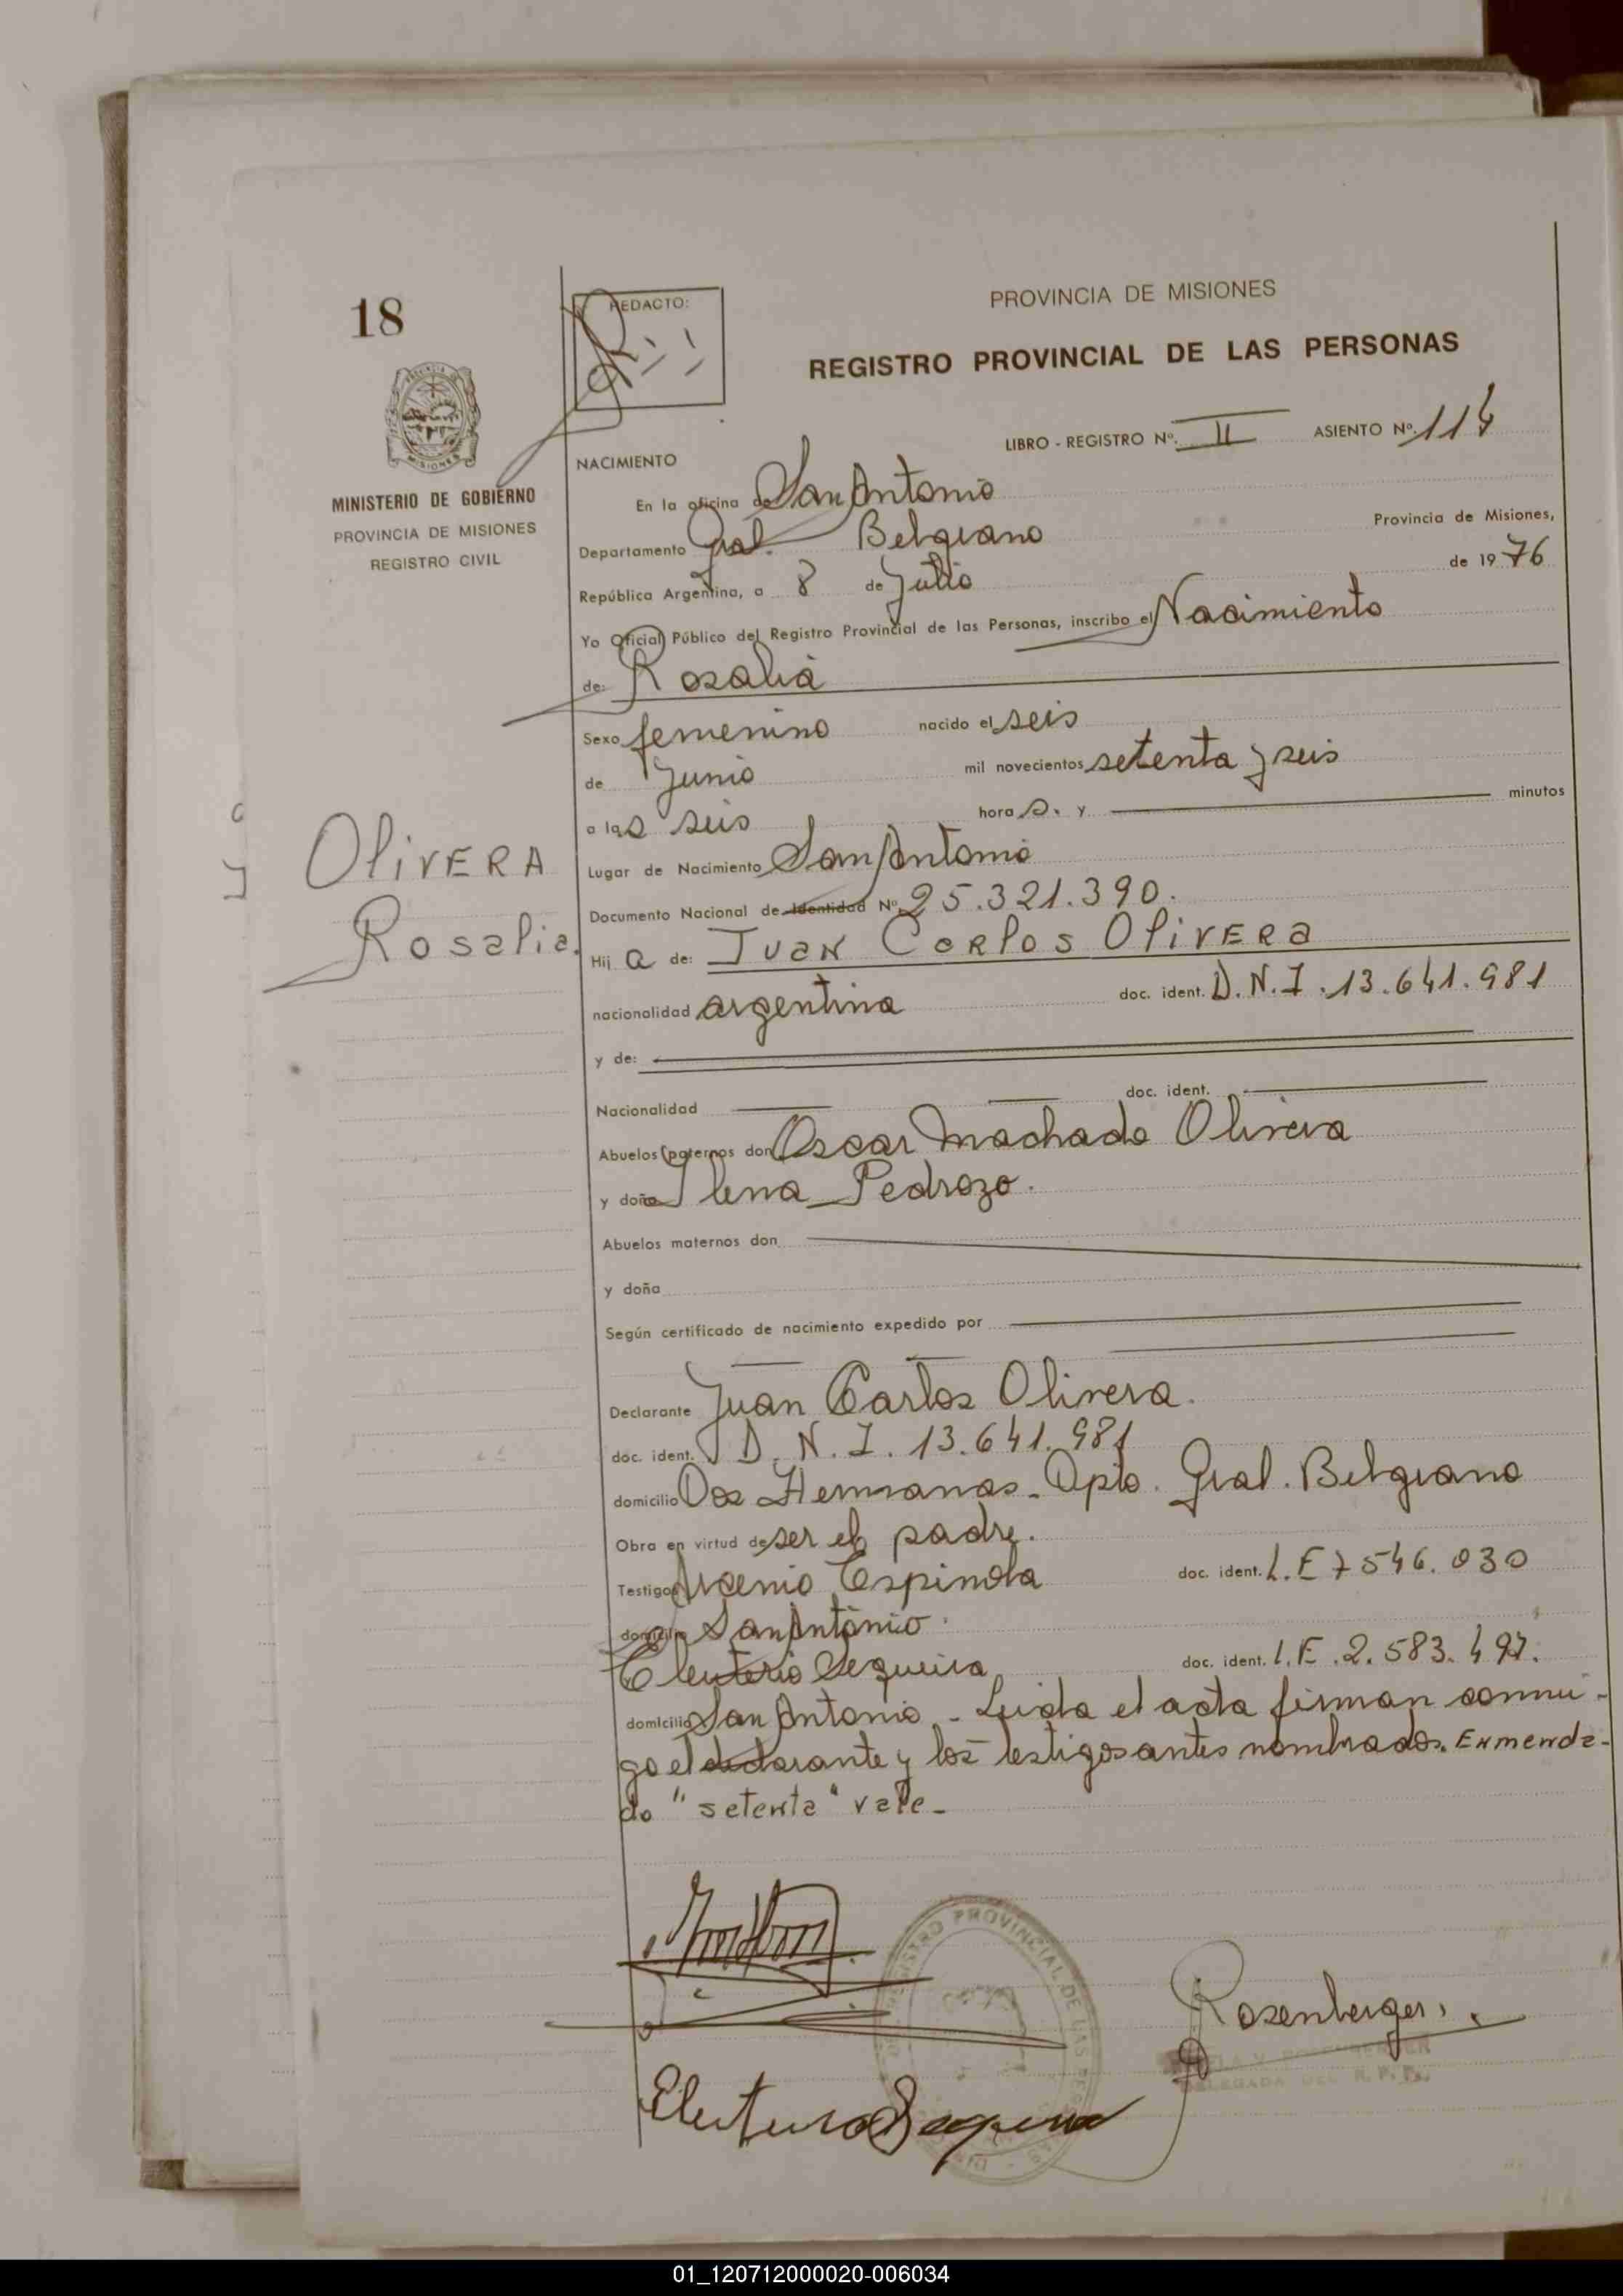 18
REDACTO:
PROVINCIA DE MISIONES
REGISTRO PROVINCIAL DE LAS PERSONAS
LIBRO - REGISTRO Nº. II ASIENTO Nº. 114
MINISTERIO DE GOBIERNO
PROVINCIA DE MISIONES
REGISTRO CIVIL
NACIMIENTO
En la oficina de San Antonio
Departamento Gral. Belgrano Provincia de Misiones,
República Argentina, a 8 de Julio de 1976
Yo Oficial Público del Registro Provincial de las Personas, inscribo el Nacimiento
de: Rosalia
Sexo femenino nacido el seis
de Junio mil novecientos setenta y seis
a las seis hora s. y minutos
OliVERA
Rosalia.
Lugar de Nacimiento San Antonio
Documento Nacional de Identidad Nº 25.321.390.
Hij a de: Juan Carlos OliVERa
nacionalidad argentina doc. ident. D.N.I. 13.641.981
y de:
Nacionalidad doc. ident.
Abuelos paternos don Oscar Machado Olivera
y doña Ilena Pedrozo.
Abuelos maternos don
y doña
Según certificado de nacimiento expedido por
Declarante Juan Carlos Olivera.
doc. ident. D.N.I. 13.641.981
domicilio Dos Hermanas - Dpto. Gral. Belgrano
Obra en virtud de ser el padre.
Testigos Espinola doc. ident. L.E 7546.030
domicilio San Antonio.
Eleuterio Sequeira doc. ident. L.E. 2.583.497.
domicilio San Antonio - Leida el acta firman conmi-
go el declarante y los testigos antes nombrados. Enmenda-
do "setenta" vale -
REGISTRO PROVINCIAL DE LAS PERSONAS
Rosenberger
DELEGADA DEL R.P.P.
Eleuterio Sequeira
01_120712000020-006034